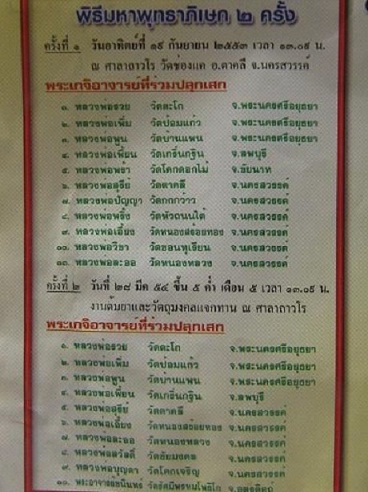 พิธีมหาพุทธาภิเษก ๒ ครั้ง
ครั้งที่ ๑ วันอาทิตย์ที่ ๑๙ กันยายน ๒๕๕๓ เวลา ๑๓.๐๙ น.
ณ ศาลาถาวโร วัดช่องแค อ.ตาคลี จ.นครสวรรค์
พระเกจิอาจารย์ที่ร่วมปลุกเสก
๑. หลวงพ่อรวย วัดตะโก จ.พระนครศรีอยุธยา
๒. หลวงพ่อเพิ่ม วัดป้อมแก้ว จ.พระนครศรีอยุธยา
๓. หลวงพ่อพูน วัดบ้านแพน จ.พระนครศรีอยุธยา
๔. หลวงพ่อเพี้ยน วัดเกริ่นกฐิน จ.ลพบุรี
๕. หลวงพ่อ วัดโคกดอกไม้ จ.ชัยนาท
๖. หลวงพ่อสุรีย์ วัดตาคลี จ.นครสวรรค์
๗. หลวงพ่อปัญญา วัดกกกว้าว จ.นครสวรรค์
๘. หลวงพ่อพริ้ง วัดหัวถนนใต้ จ.นครสวรรค์
๙. หลวงพ่อเอี้ยง วัดหนองสร้อยทอง จ.นครสวรรค์
๑๐. หลวงพ่อวิชา วัดชอนทุเรียน จ.นครสวรรค์
๑๑. หลวงพ่อละออ วัดหนองหลวง จ.นครสวรรค์
ครั้งที่ ๒ วันที่ ๒๘ มีค ๕๔ ขึ้น ๕ ค่ำ เดือน ๕ เวลา ๑๓.๐๙ น.
งานต้มยาและวัตถุมงคลแจกทาน ณ ศาลาถาวโร
พระเกจิอาจารย์ที่ร่วมปลุกเสก
๑. หลวงพ่อรวย วัดตะโก จ.พระนครศรีอยุธยา
๒. หลวงพ่อเพิ่ม วัดป้อมแก้ว จ.พระนครศรีอยุธยา
๓. หลวงพ่อพูน วัดบ้านแพน จ.พระนครศรีอยุธยา
๔. หลวงพ่อเพี้ยน วัดเกริ่นกฐิน จ.ลพบุรี
๕. หลวงพ่อสุรีย์ วัดตาคลี จ.นครสวรรค์
๖. หลวงพ่อเอี้ยง วัดหนองสร้อยทอง จ.นครสวรรค์
๗. หลวงพ่อละออ วัดหนองหลวง จ.นครสวรรค์
๘. หลวงพ่อสวัสดิ์ จ.นครสวรรค์
๙. หลวงพ่อบุญตา วัดโคกเจริญ จ.นครสวรรค์
๑๐.